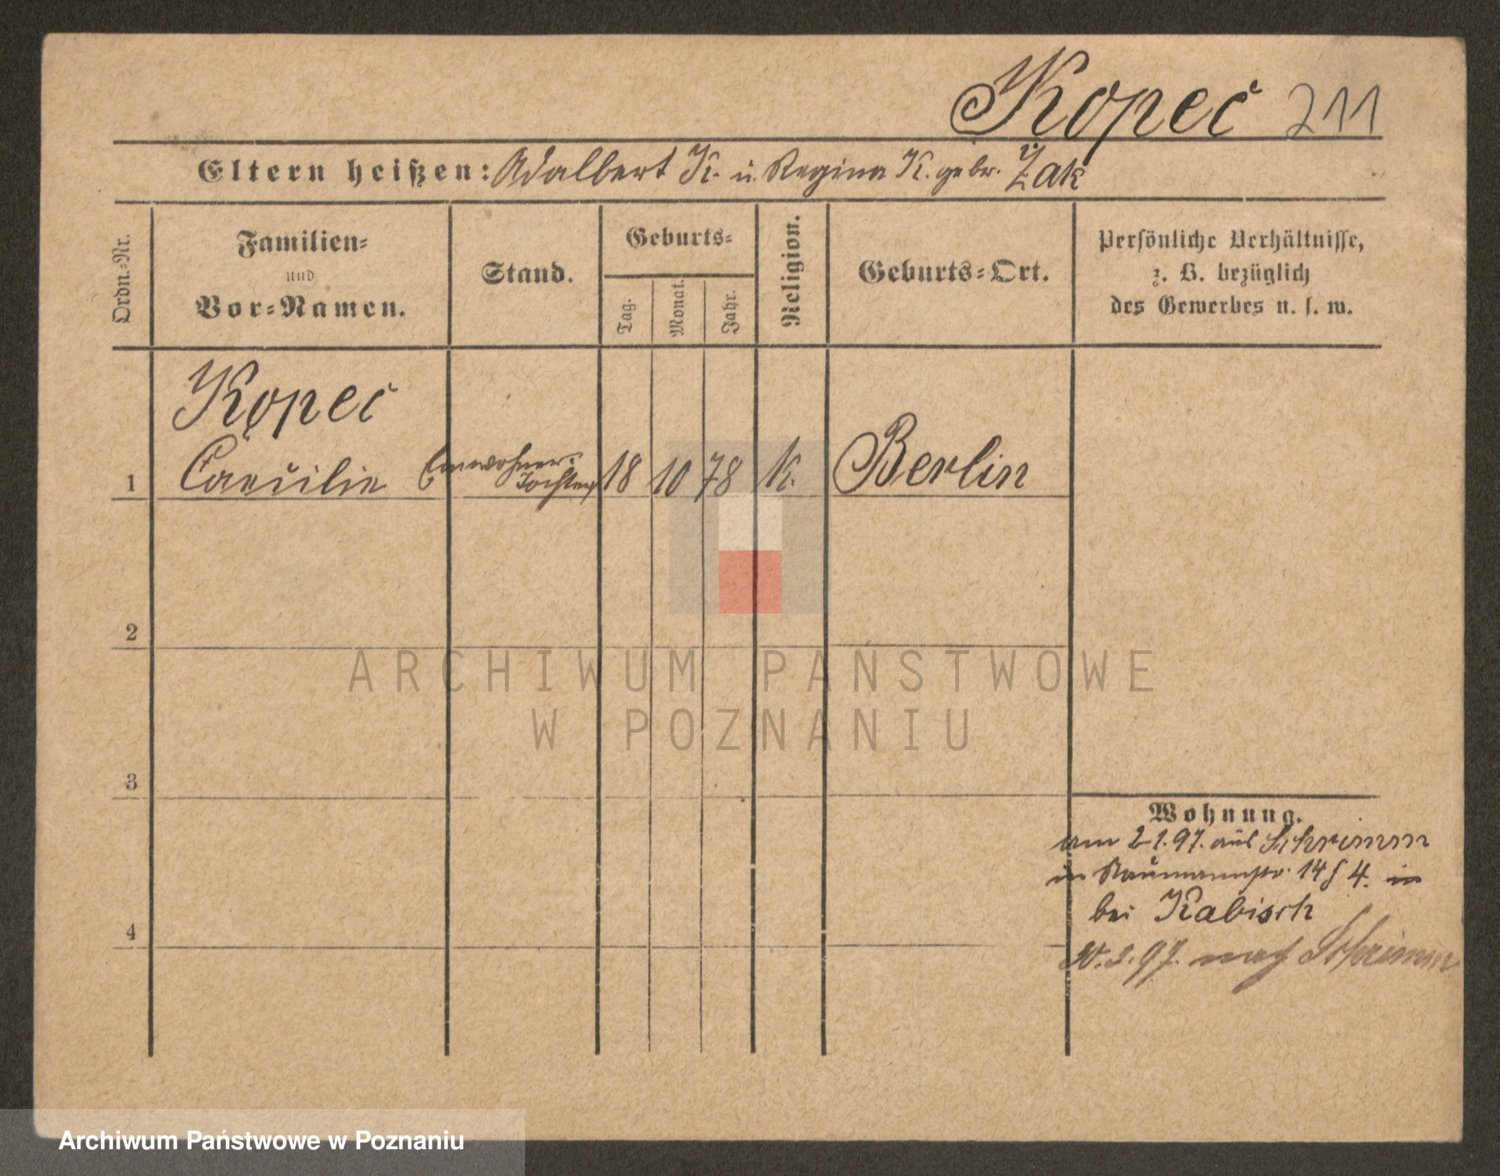 Kopeć 211
Eltern heißen: Adalbert K. u. Regina K. gebr. Żak
Ordn.-Nr.
Familien-
und
Vor-Namen.
Stand.
Geburts-
Tag.
Monat.
Jahr.
Religion.
Geburts-Ort.
Persönliche Verhältnisse,
z. B. bezüglich
des Gewerbes u. s. w.
Kopeć
1 Caecilie Einwohner-
Tochter 18 10 78 K. Berlin
2
3
4
Wohnung.
am 2 1. 97. aus Schrimm
in Naumannstr. 14 4. in
bei Kabisch
97. nach Schrimm
ARCHIWUM PAŃSTWOWE
W POZNANIU
Archiwum Państwowe w Poznaniu